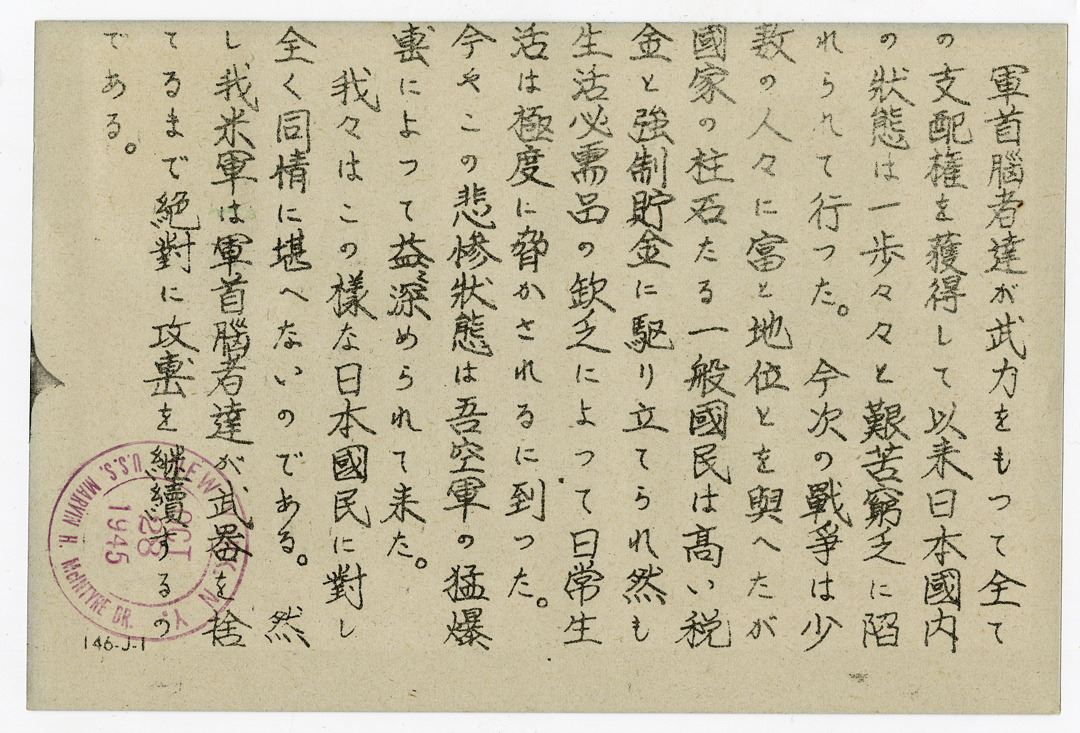 軍首腦者達が武力をもつて全て
の支配權を獲得して以来日本國内
の狀態は一歩々々と艱苦窮乏に陷
れられて行つた。今次の戰爭は少
数の人々に富と地位とを與へたが
國家の柱石たる一般國民は高い税
金と強制貯金に駆り立てられ然も
生活必需品の欽乏によつて日常生
活は極度に脅かされるに到つた。
今やこの悲惨狀態は吾空軍の猛爆
撃によつて益〻深められて来た。
我々はこの樣な日本國民に對し
全く同情に堪へないのである。然
し我米軍は軍首腦者達が、武器を捨
てるまで絶對に攻撃を継續するの
である。
U.S.S. MARVIN H. McINTYRE BR.
NEW YORK N.Y.
OCT
28
1945
146-J-1